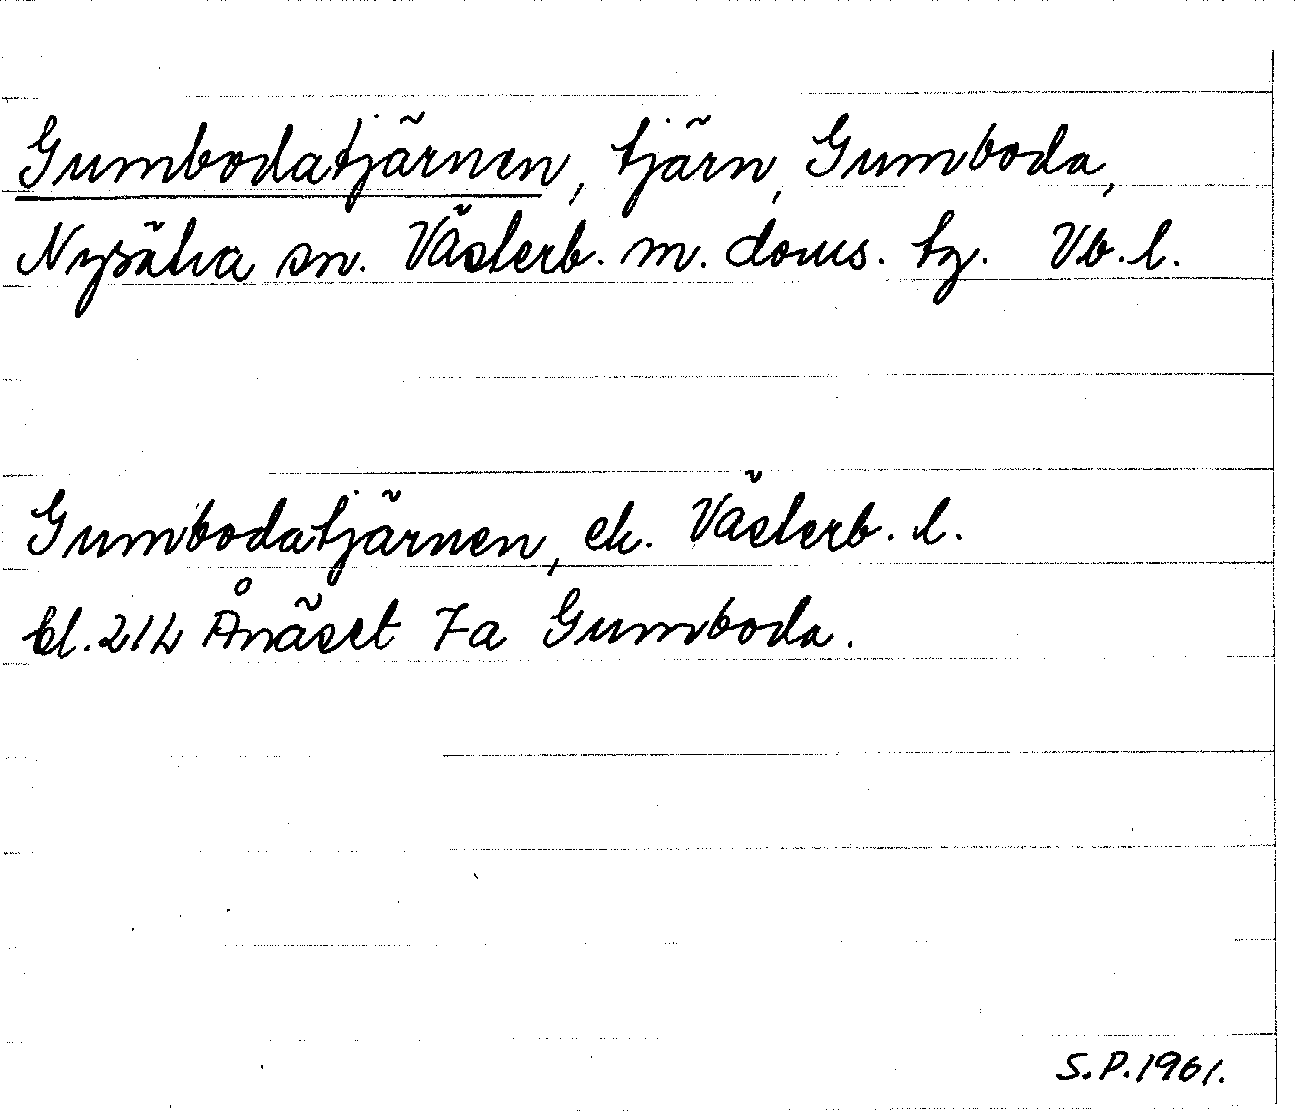 Gumbodatjärnen, tjärn, Gumboda,
Nysätra sn. Västerb. m. doms. tg. Vb. l.
Gumbodatjärnen, ek. Västerb. l.
bl. 214 Ånäset 7a Gumboda.
S.P. 1961.